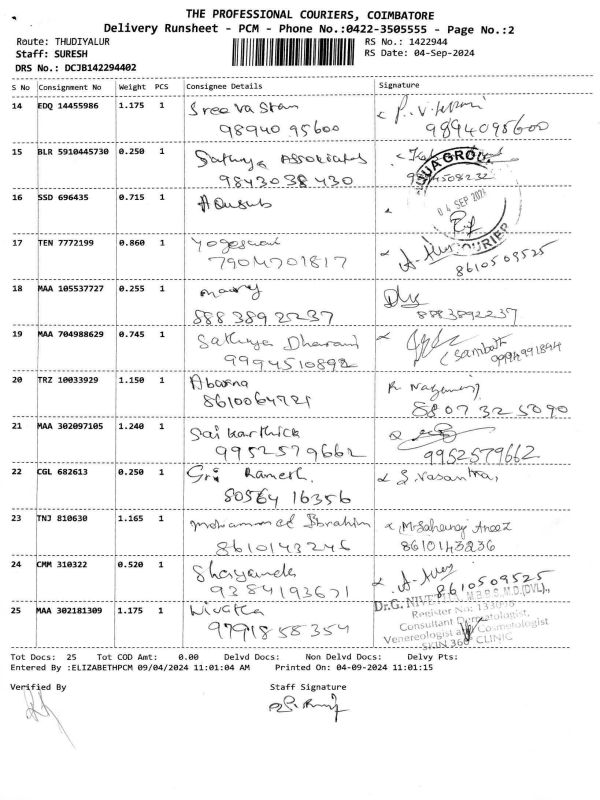 THE PROFESSIONAL COURIERS, COIMBATORE
Delivery Runsheet - PCM - Phone No.:0422-3505555 - Page No.:2
Route: THUDIYALUR RS No.: 1422944
Staff: SURESH RS Date: 04-Sep-2024
DRS No.: DCJB142294402
S No Consignment No Weight PCS Consignee Details Signature
14 EDQ 14455986 1.175 1 Sree Vastan
98940 95600 9894095600
15 BLR 5910445730 0.250 1 Sathya Associates
9843038430
16 SSD 696435 0.715 1
04 SEP 2024
COURIER
17 TEN 7772199 0.860 1 Yogeswari
7904701817 8610509525
18 MAA 105537727 0.255 1
8883892237 8883892237
19 MAA 704988629 0.745 1 Sathya Dharani
(Sambath
20 TRZ 10033929 1.150 1 Abarna
8610064721 8807325090
21 MAA 302097105 1.240 1 Sai karthick
9952579662 9952579662
22 CGL 682613 0.250 1 Sri Ramesh. S. Vasantha,
80564 16356
23 TNJ 810630 1.165 1 Mohammed Ibrahim
8610143246 8610143236
24 CMM 310322 0.520 1
9384193671 8610509525
25 MAA 302181309 1.175 1
9791858354
M.B.B.S.,M.D.(DVL).,
Consultant Dermatologist,
Venereologist Cosmetologist
SKIN 360 CLINIC
Tot Docs: 25 Tot COD Amt: 0.00 Delvd Docs: Non Delvd Docs: Delvy Pts:
Entered By :ELIZABETHPCM 09/04/2024 11:01:04 AM Printed On: 04-09-2024 11:01:15
Verified By Staff Signature